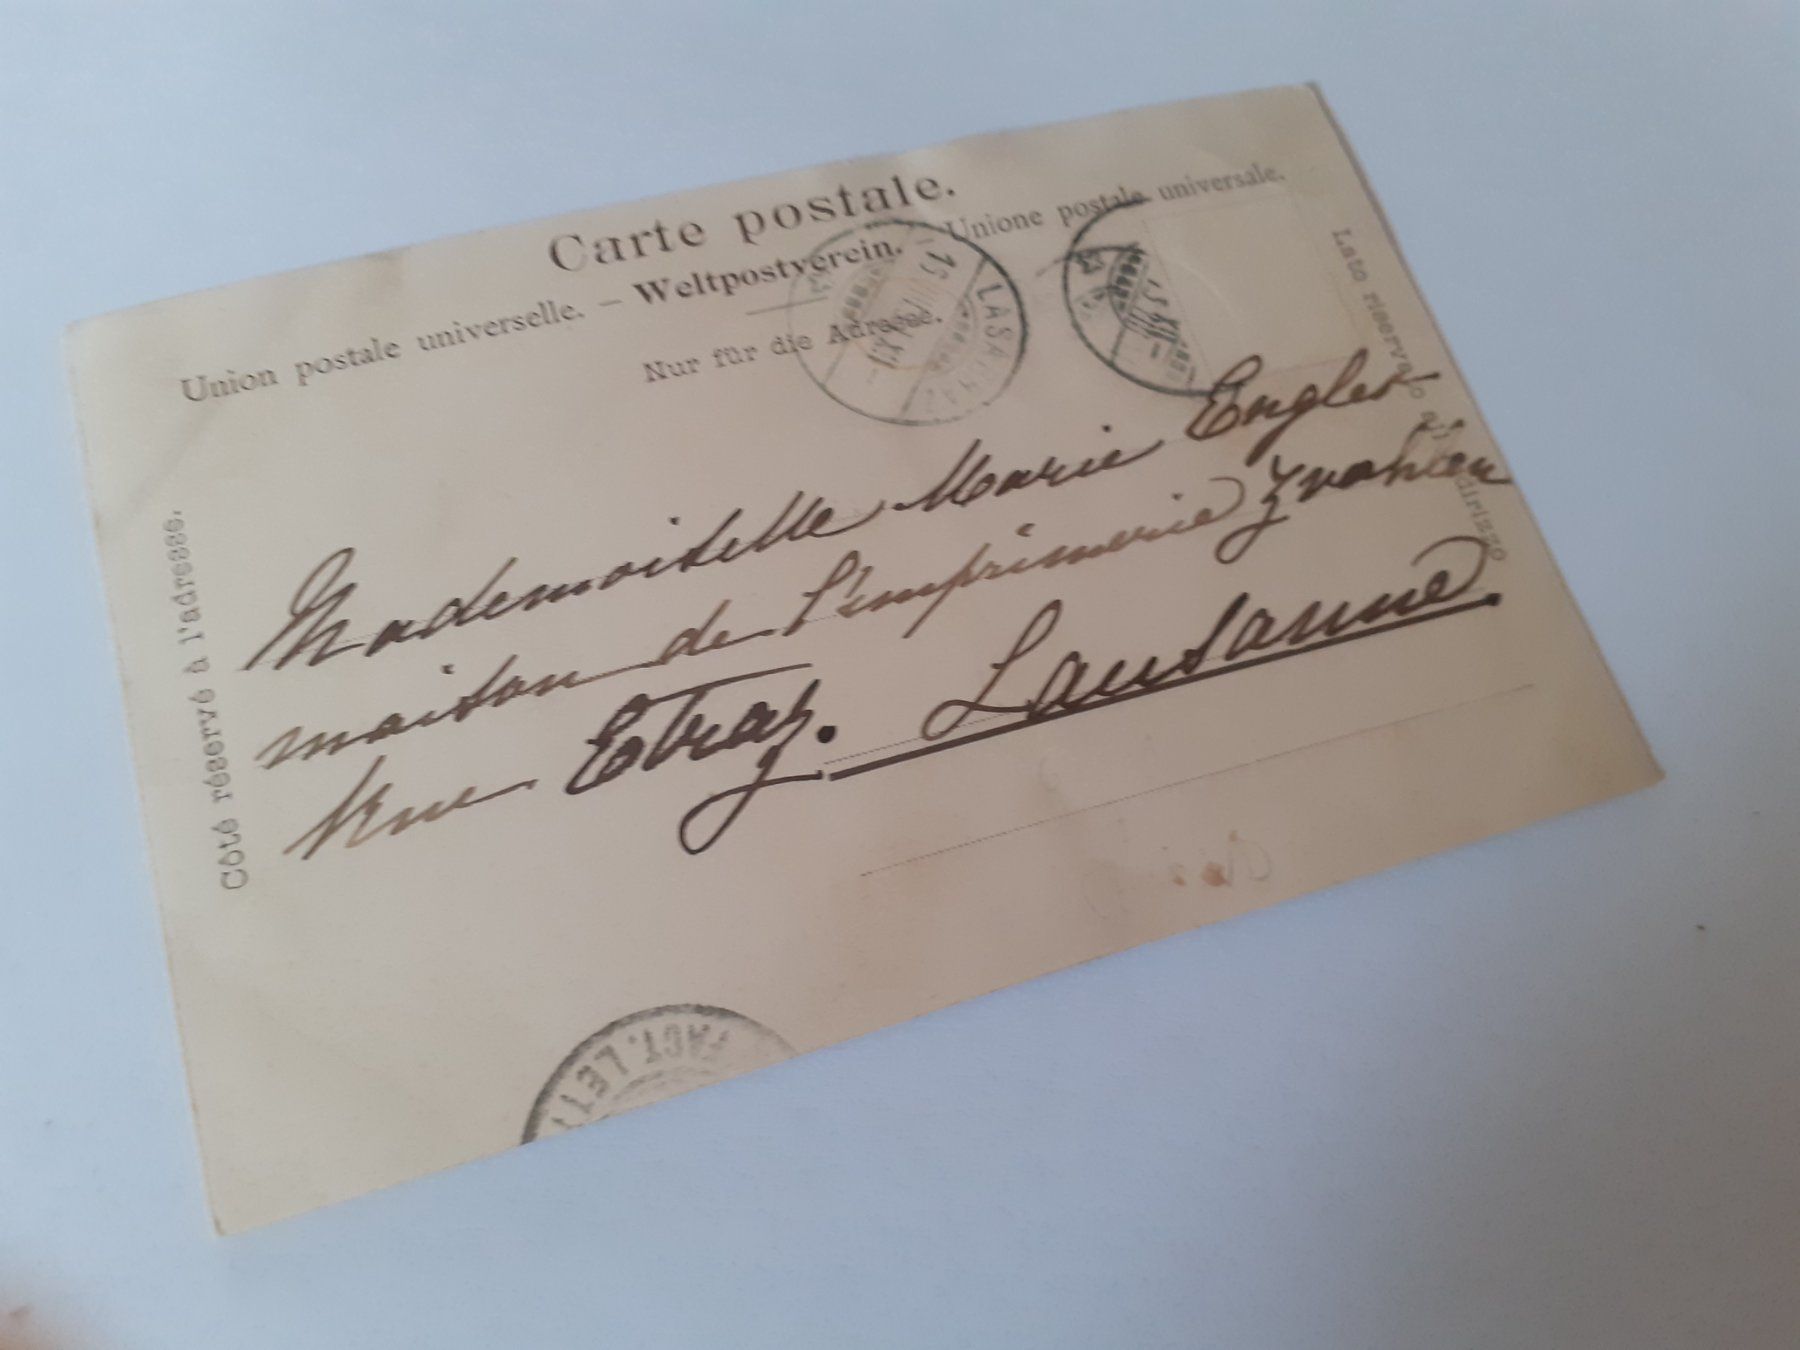 Carte postale.
Union postale universelle. – Weltpostverein. – Unione postale universale.
Nur für die Adresse.
Côté réservé à l'adresse.
Lato riservato all'indirizzo
LASARRAZ
Mademoiselle Marie Engler
maison de l'imprimerie
Rue Etraz. Lausanne.
FACT. LETT